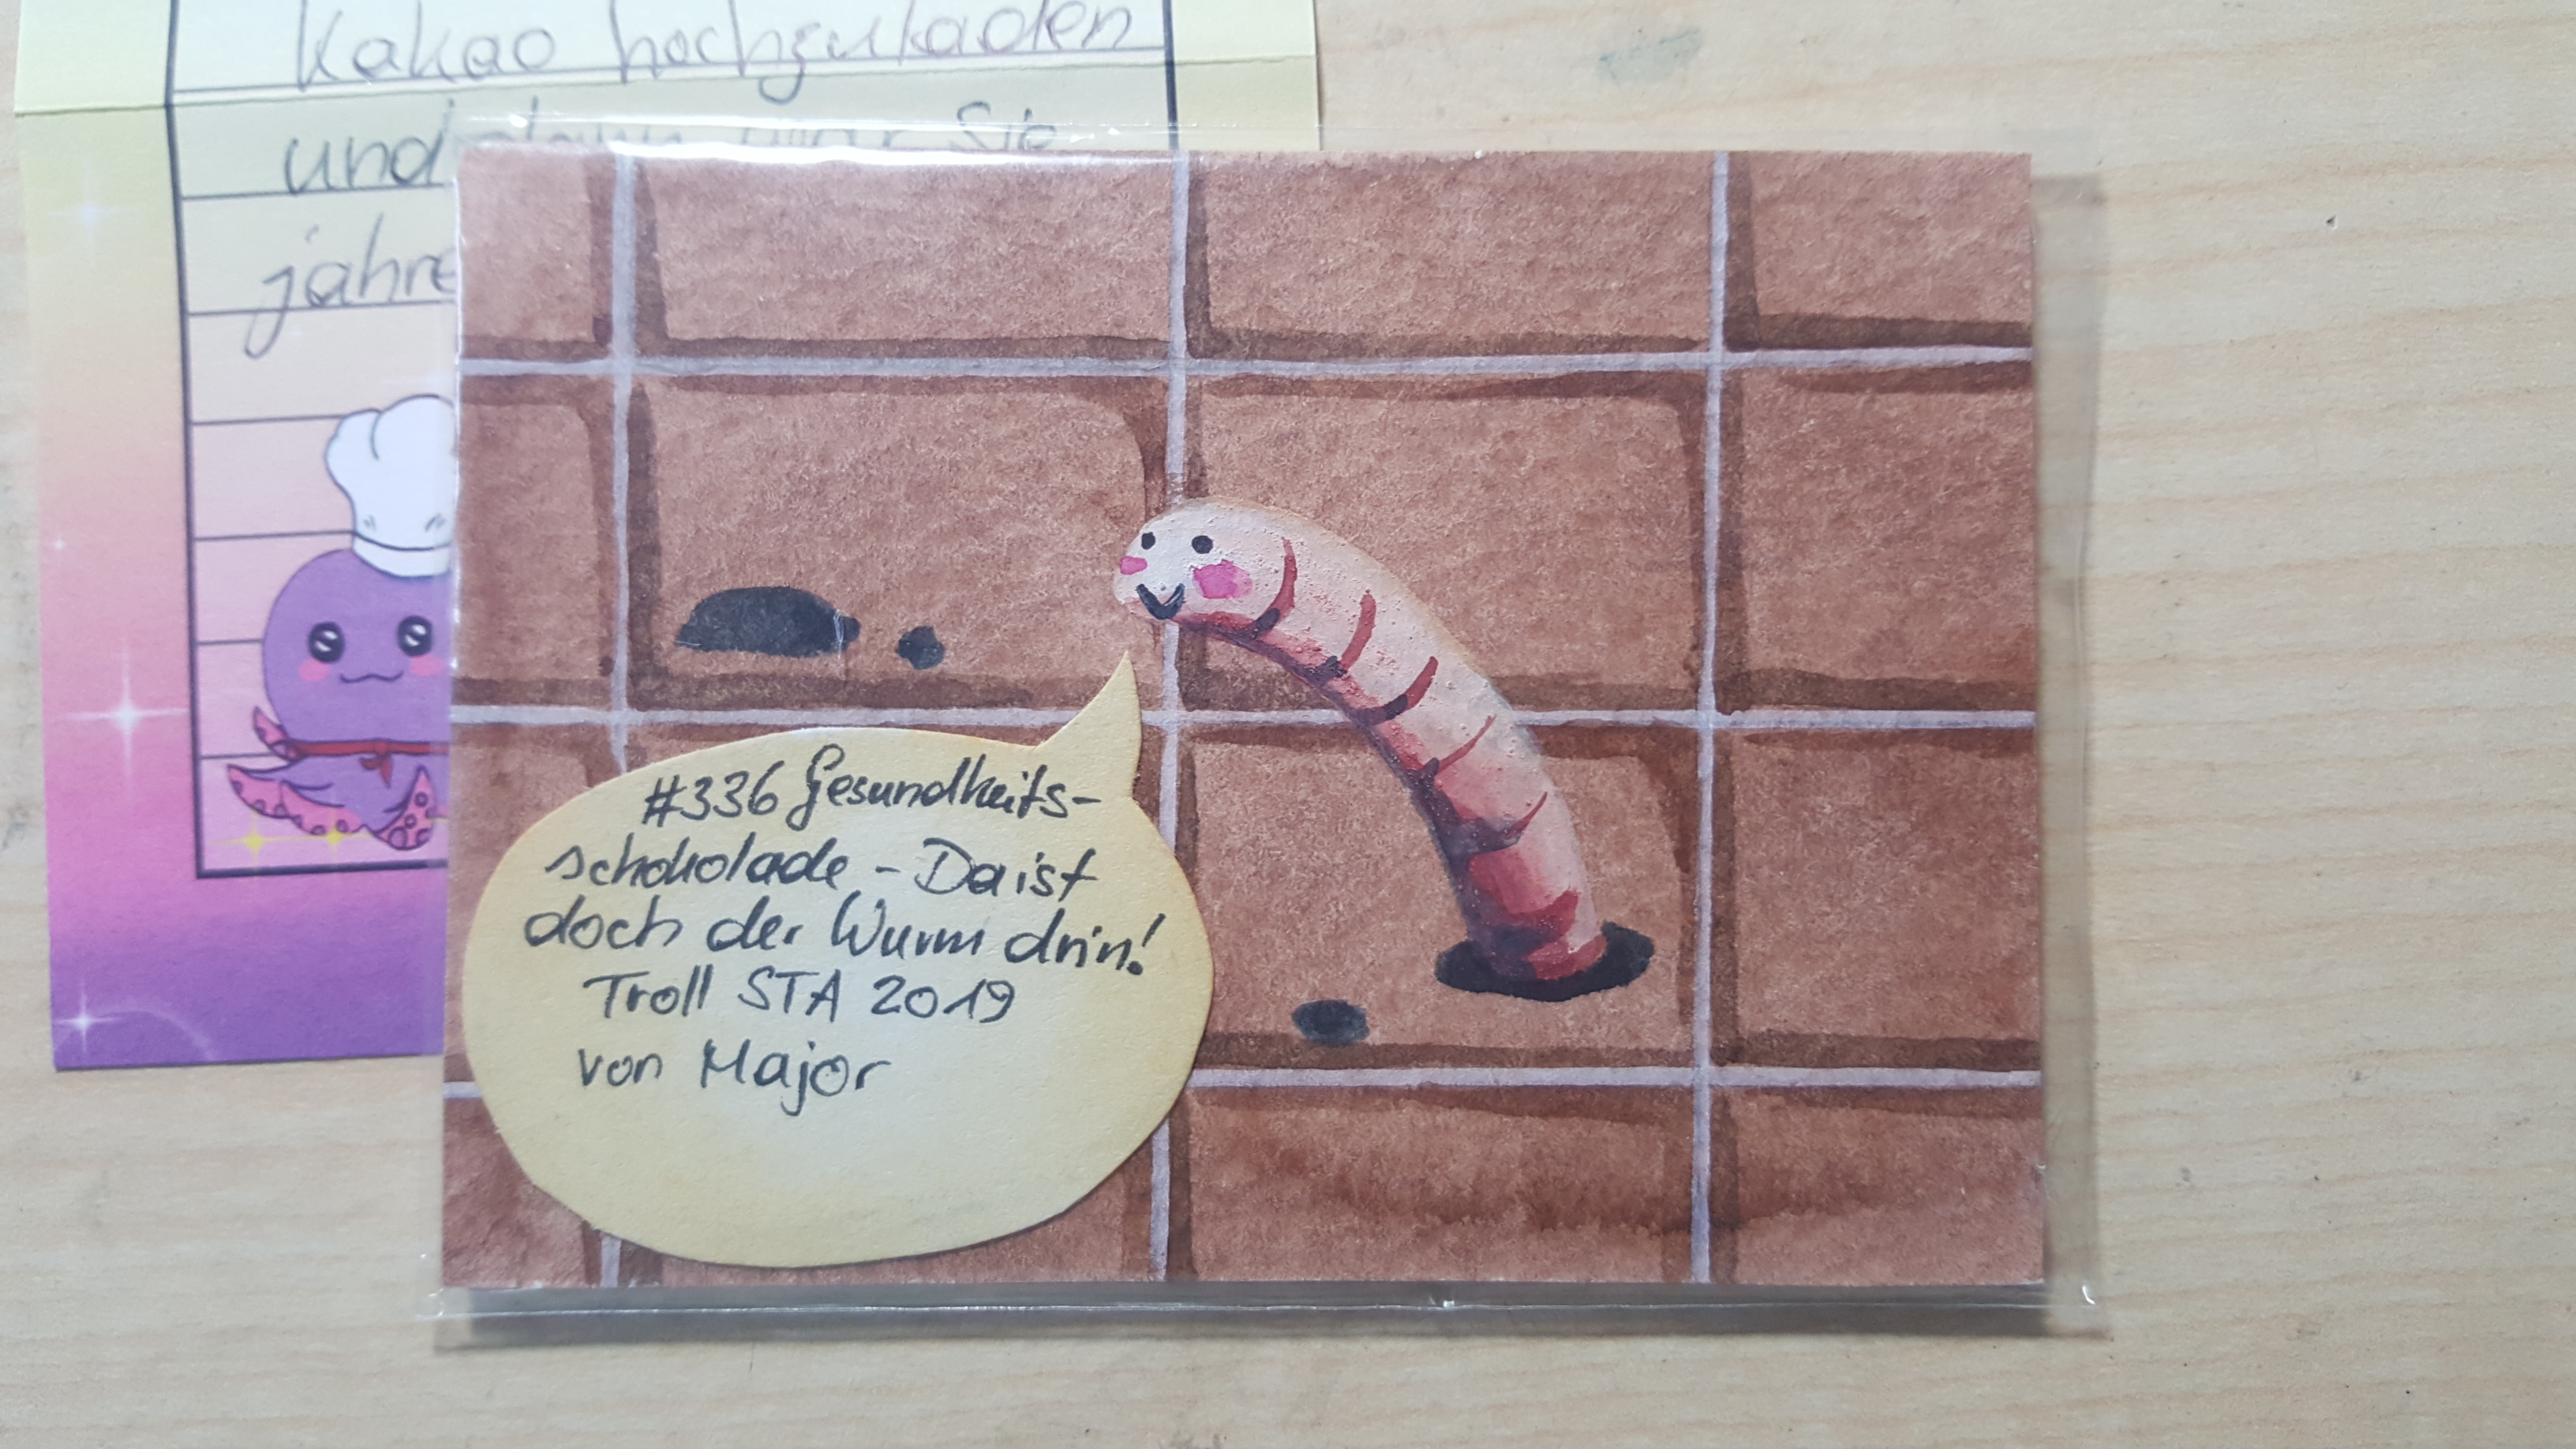 Kakao hochzuladen
und dann war Sie
jahre
#336 Gesundheits-
schokolade - Da ist
doch der Wurm drin!
Troll STA 2019
von Major